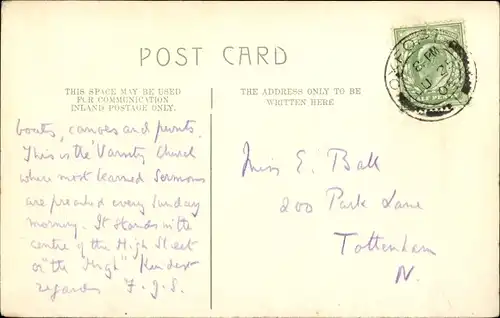 POST CARD
THIS SPACE MAY BE USED
FOR COMMUNICATION
INLAND POSTAGE ONLY.
THE ADDRESS ONLY TO BE
WRITTEN HERE
boats, canoes and punts.
This is the 'Varsity Church
where most learned Sermons
are preached every Sunday
morning. It stands in the
centre of the High Street
or "the High" Kindest
regards F.J.S.
Miss E. Ball
200 Park Lane
Tottenham
N.
OXFORD